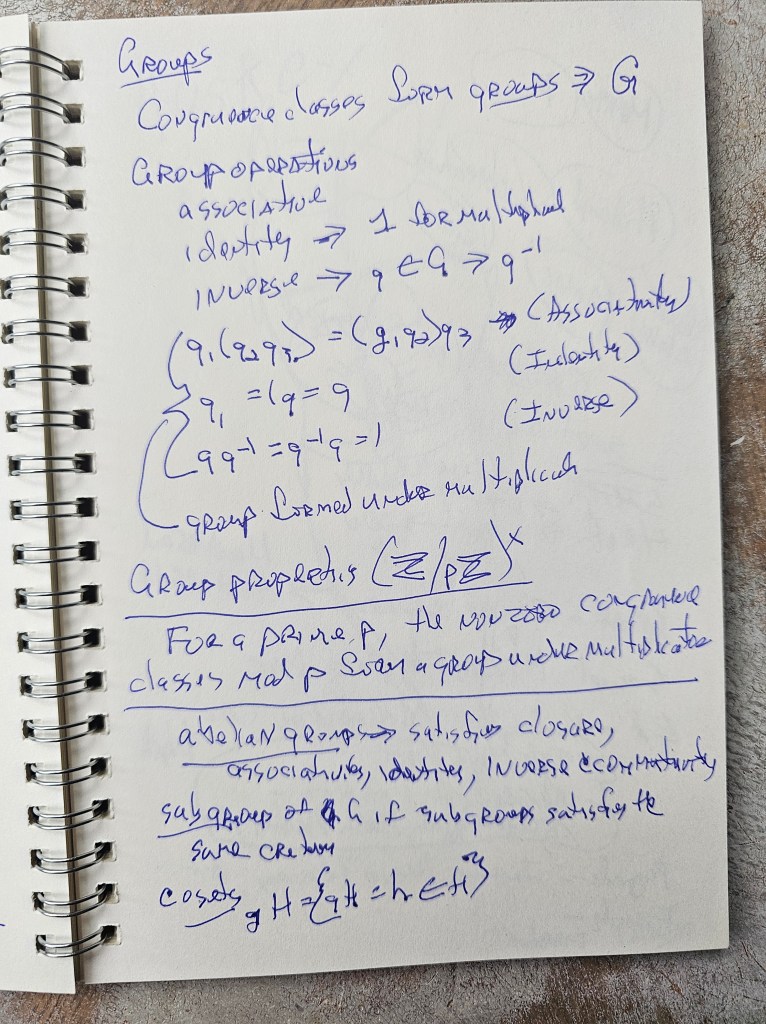 Groups
Congruence classes form groups ⇒ G
Group operations
associative
identity → 1 for multiplicat
inverse → g ∈ G → g⁻¹
g₁(g₂g₃) = (g₁g₂)g₃ → (Associativity)
g₁ = 1g = g (Indentity)
gg⁻¹ = g⁻¹g = 1 (Inverse)
group formed under multiplication
Group properties (ℤ/pℤ)ˣ
For a prime p, the nonzero congruence
classes mod p form a group under multiplication
abelian groups → satisfies closure,
associativity, identity, inverse & commutativity
subgroup of G if subgroups satisfies the
same
cosets gH = {gH = h ∈ H}